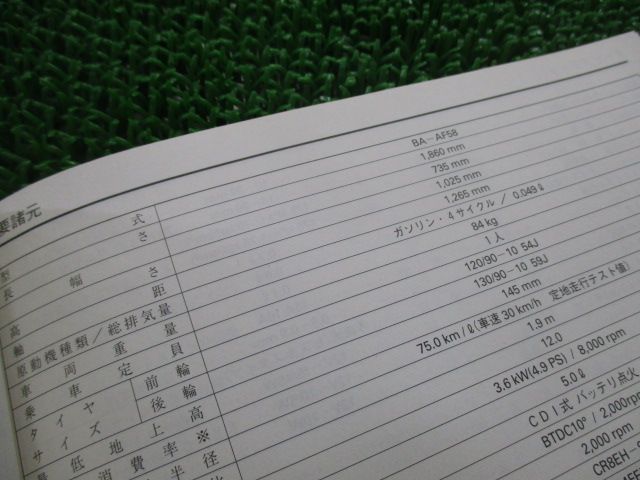 要諸元
型 式 BA-AF58
長 さ 1,860 mm
幅 735 mm
高 さ 1,025 mm
軸 距 1,265 mm
原動機種類／総排気量 ガソリン・4サイクル / 0.049ℓ
車両重量 84 kg
乗車定員 1人
タイヤサイズ 前輪 120/90-10 54J
後輪 130/90-10 59J
最低地上高 145 mm
消費率※ 75.0 km/ℓ(車速30 km/h 定地走行テスト値)
半径 1.9 m
12.0
3.6 kW(4.9 PS) / 8,000 rpm
5.0ℓ
CDI式 バッテリ点火
BTDC10° / 2,000rpm
2,000 rpm
CR8EH-